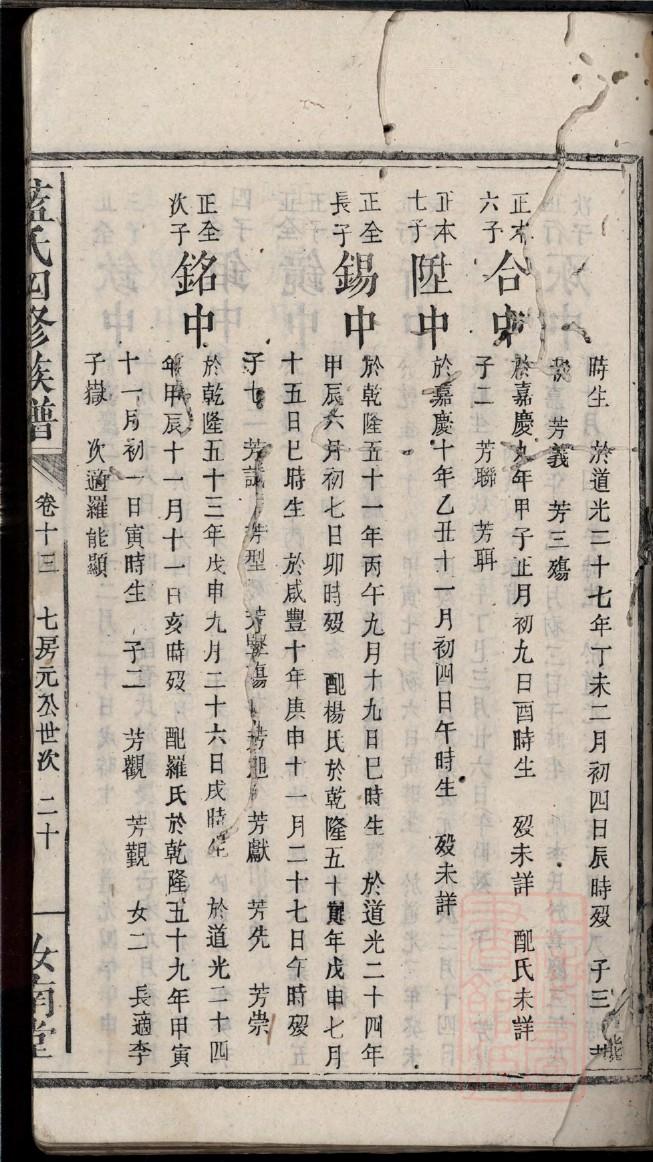 時生 於道光二十七年丁未二月初四日辰時歿 子三 芳
芳義 芳三殤
正本
六子
合中
於嘉慶九年甲子正月初九日酉時生 歿未詳 配氏未詳
子二 芳聯 芳聑
正本
七子
陞中
於嘉慶十年乙丑十 月初四日午時生 歿未詳
正全
長子
錫中
於乾隆五十一年丙午九月十九日巳時生 於道光二十四年
甲辰六月初七日卯時歿 配楊氏於乾隆五十 年戊申七月
十五日巳時生 於咸豐十年庚申十一月二十七日午時歿
子七 芳 芳型 芳 殤 芳 芳獻 芳先 芳崇
正全
次子
銘中
於乾隆五十三年戊申九月二十六日戌時生 於道光二十四
年甲辰十一月十一日亥時歿 配羅氏於乾隆五十九年甲寅
十一月初一日寅時生 子二 芳觀 芳觀 女二 長適李
子嶽 次適羅能顯
藍氏四修族譜 卷十三 七房元公世次 二十 汝南堂